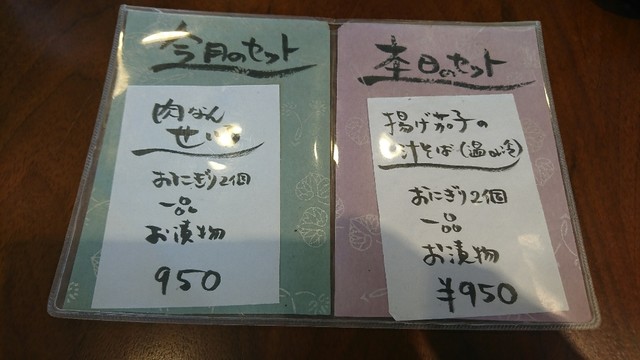 今月のセット
肉なん
せいろ
おにぎり2個
一品
お漬物
950
本日のセット
揚げ茄子の
汁そば(温or冷)
おにぎり2個
一品
お漬物
¥950